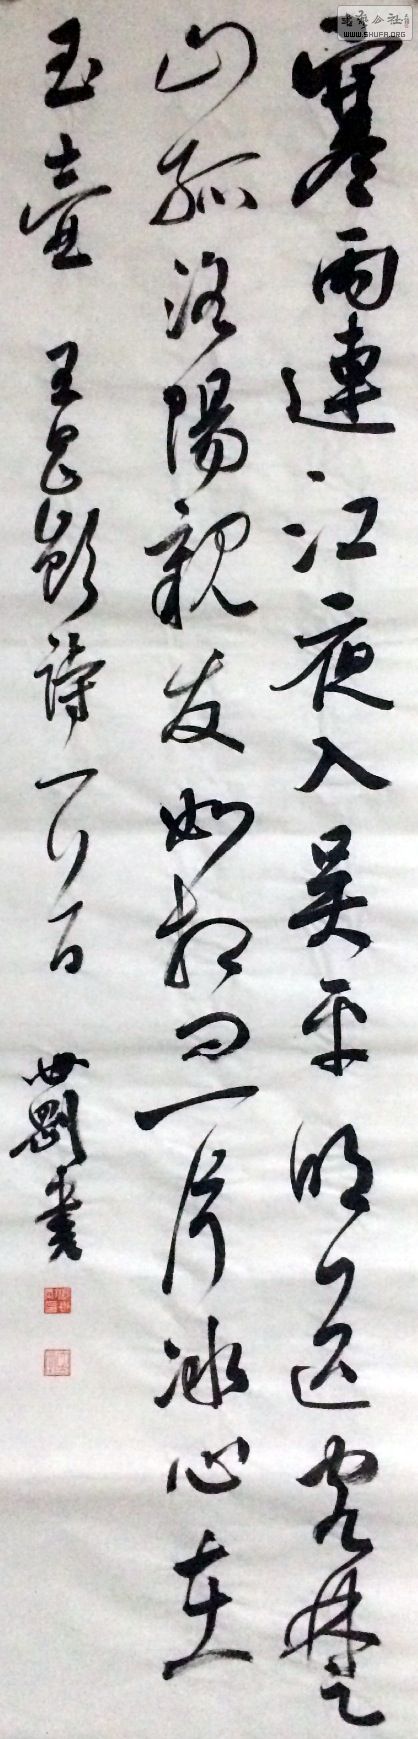 寒雨連江夜入吴平明送客楚
山孤洛陽親友如相問一片冰心在
玉壶 王昌龄詩一首
世劉書
書藝公社
WWW.SHUFA.ORG